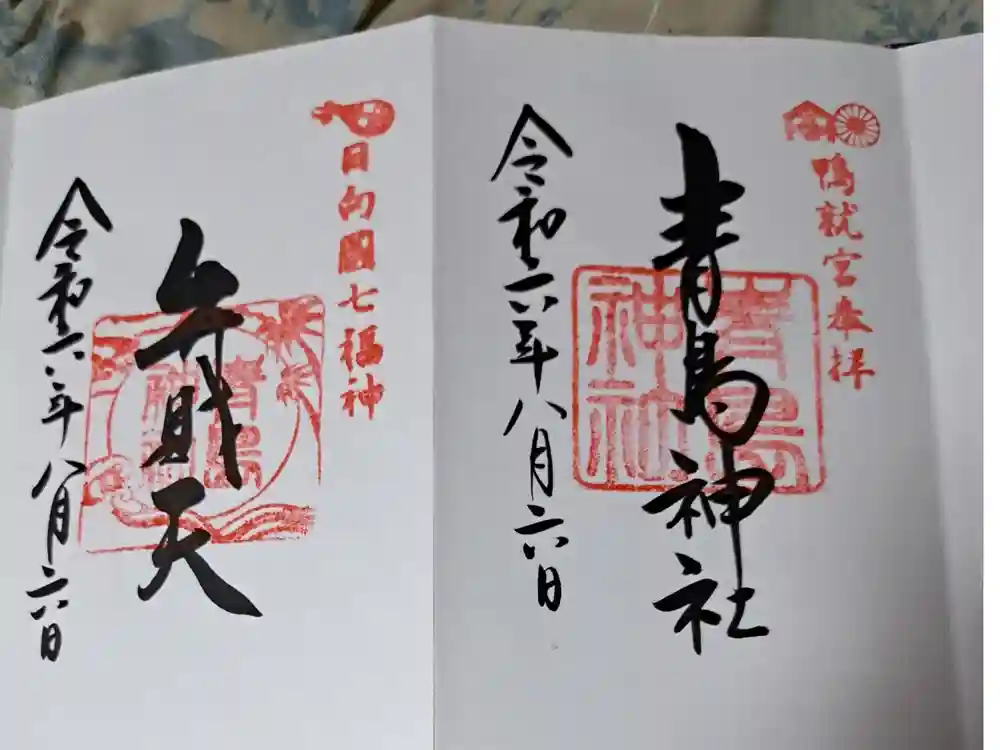 鴨就宮奉拝
青島神社
青島
神社
令和六年八月六日
日向國七福神
弁財天
青島
神社
令和六年八月六日